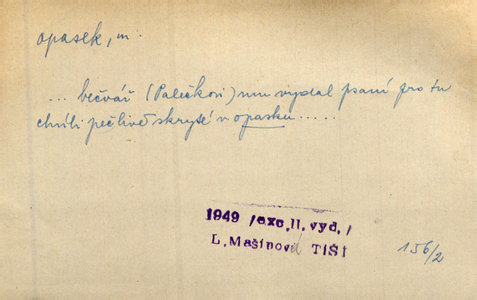 opasek, m.
... bečvář (Palečkovi) mu vydal psaní pro tu
chvíli pečlivě skryté v opasku.....
1949 /exc.II.vyd./
L.Mašínová TIŠI
156/2